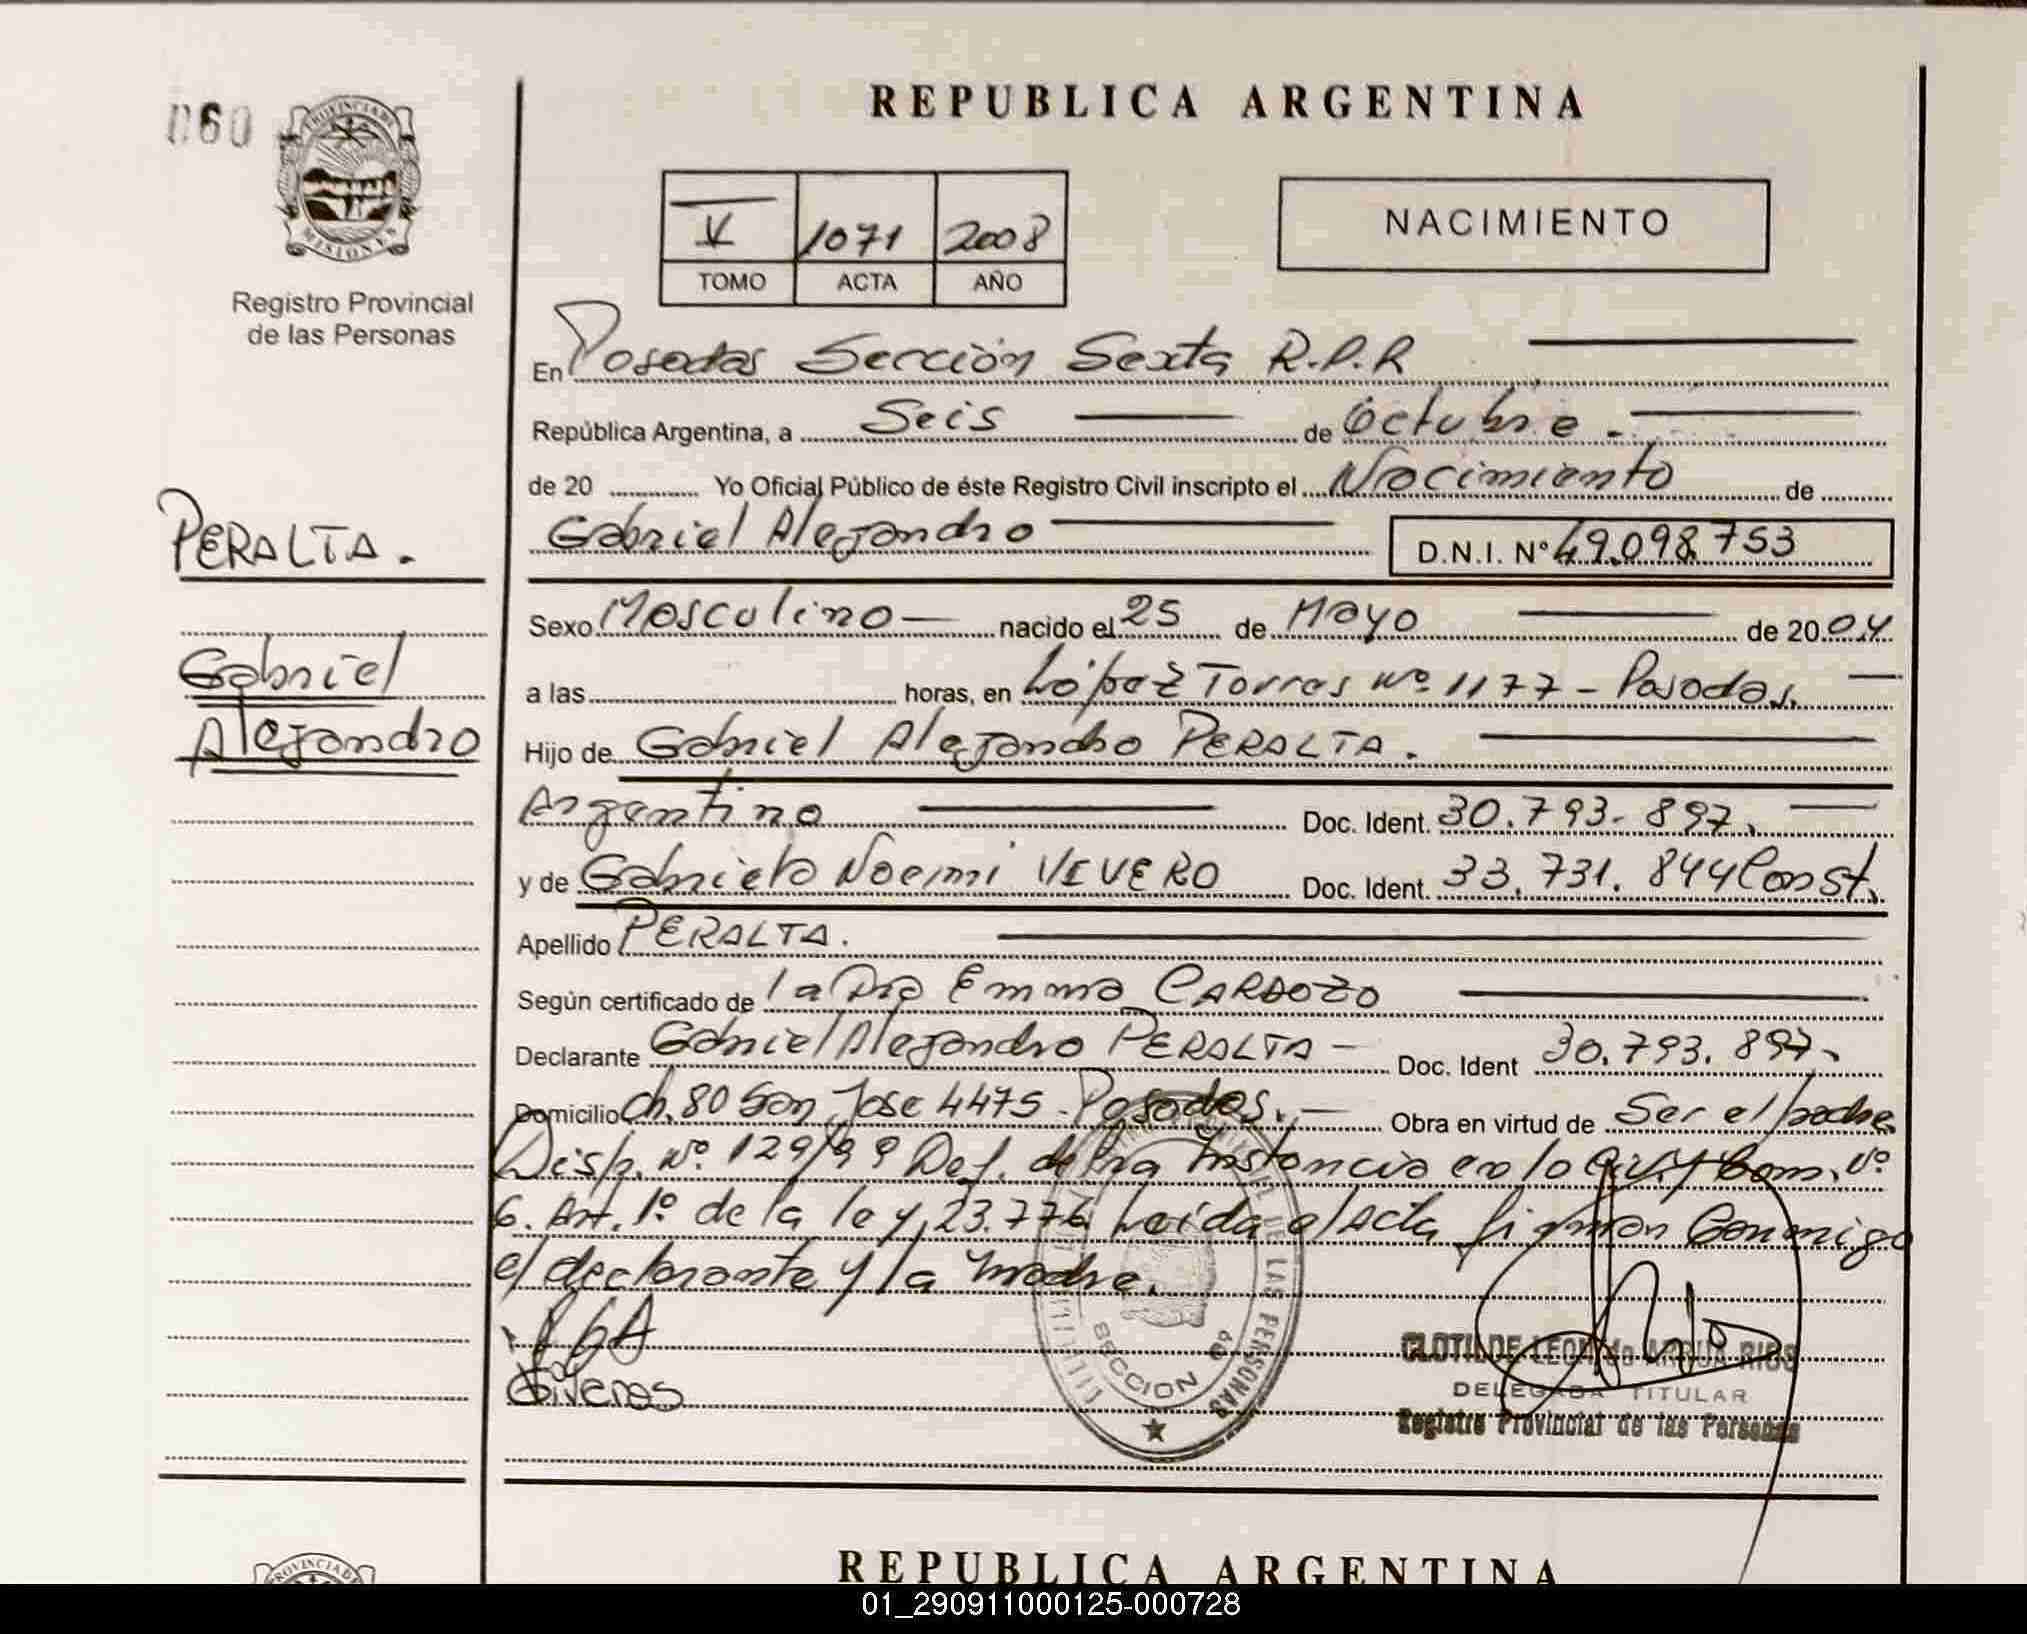 060
PROVINCIA DE
MISIONES
Registro Provincial
de las Personas
PERALTA.
Gabriel
Alejandro
REPUBLICA ARGENTINA
V 1071 2008
TOMO ACTA AÑO
NACIMIENTO
En Posadas Sección Sexta R.P.P
República Argentina, a Seis de Octubre.
de 20 Yo Oficial Público de éste Registro Civil inscripto el Nacimiento de
Gabriel Alejandro D.N.I. Nº 49.098.753
Sexo Masculino nacido el 25 de Mayo de 2004
a las horas, en López Torres Nº 1177 - Posadas.
Hijo de Gabriel Alejandro PERALTA.
Argentino Doc. Ident. 30.793.897.
y de Gabriela Noemi VIVERO Doc. Ident. 33.731.844 Const.
Apellido PERALTA.
Según certificado de la Dra Emma CARDOZO
Declarante Gabriel Alejandro PERALTA - Doc. Ident 30.793.897.
Domicilio Ch. 80 San Jose 4475 - Posadas. Obra en virtud de Ser el padre
Disp. Nº 129/99 Def. de 1ra Instancia en lo Civ. y Com. Nº
6. Art. 1º de la ley 23.776 Leida el Acta firman Conmigo
el declarante y la madre.
PGA
Giveros
DE LAS PERSONAS
SECCION 6º
CLOTILDE LEON de RIOS
DELEGADA TITULAR
Registro Provincial de las Personas
PROVINCIA DE
REPUBLICA ARGENTINA
01_290911000125-000728